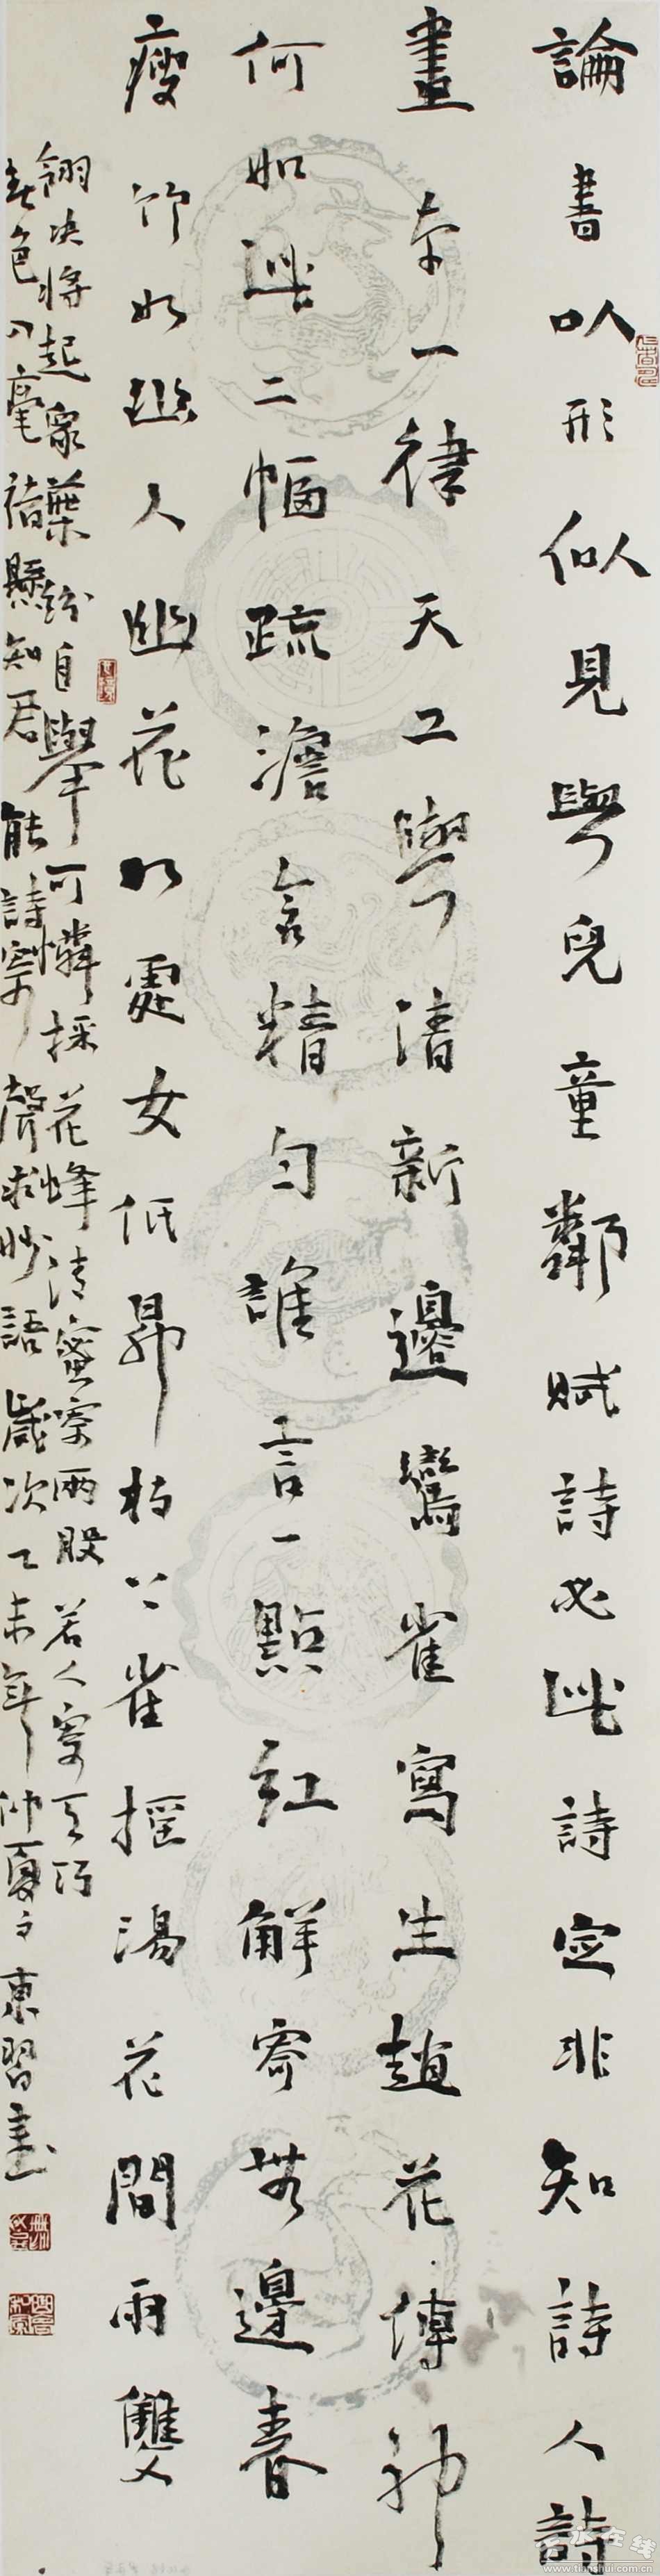 論書以形似見與兒童鄰賦詩必此詩定非知詩人詩
畫本一律天工與清新邊鸞雀寫生趙花傳神
何如此二幅疏澹含精勻誰言一點紅解寄無邊春
瘦竹如幽人幽花如處女低昂枝上雀搖湯花間雨雙
翎決將起眾葉紛自舉可憐採花蜂清蜜寄兩股若人富天巧
春色入毫楮懸知君能詩寄聲求妙語歲次乙未年仲夏東習書
天水在线
www.tianshui.com.cn